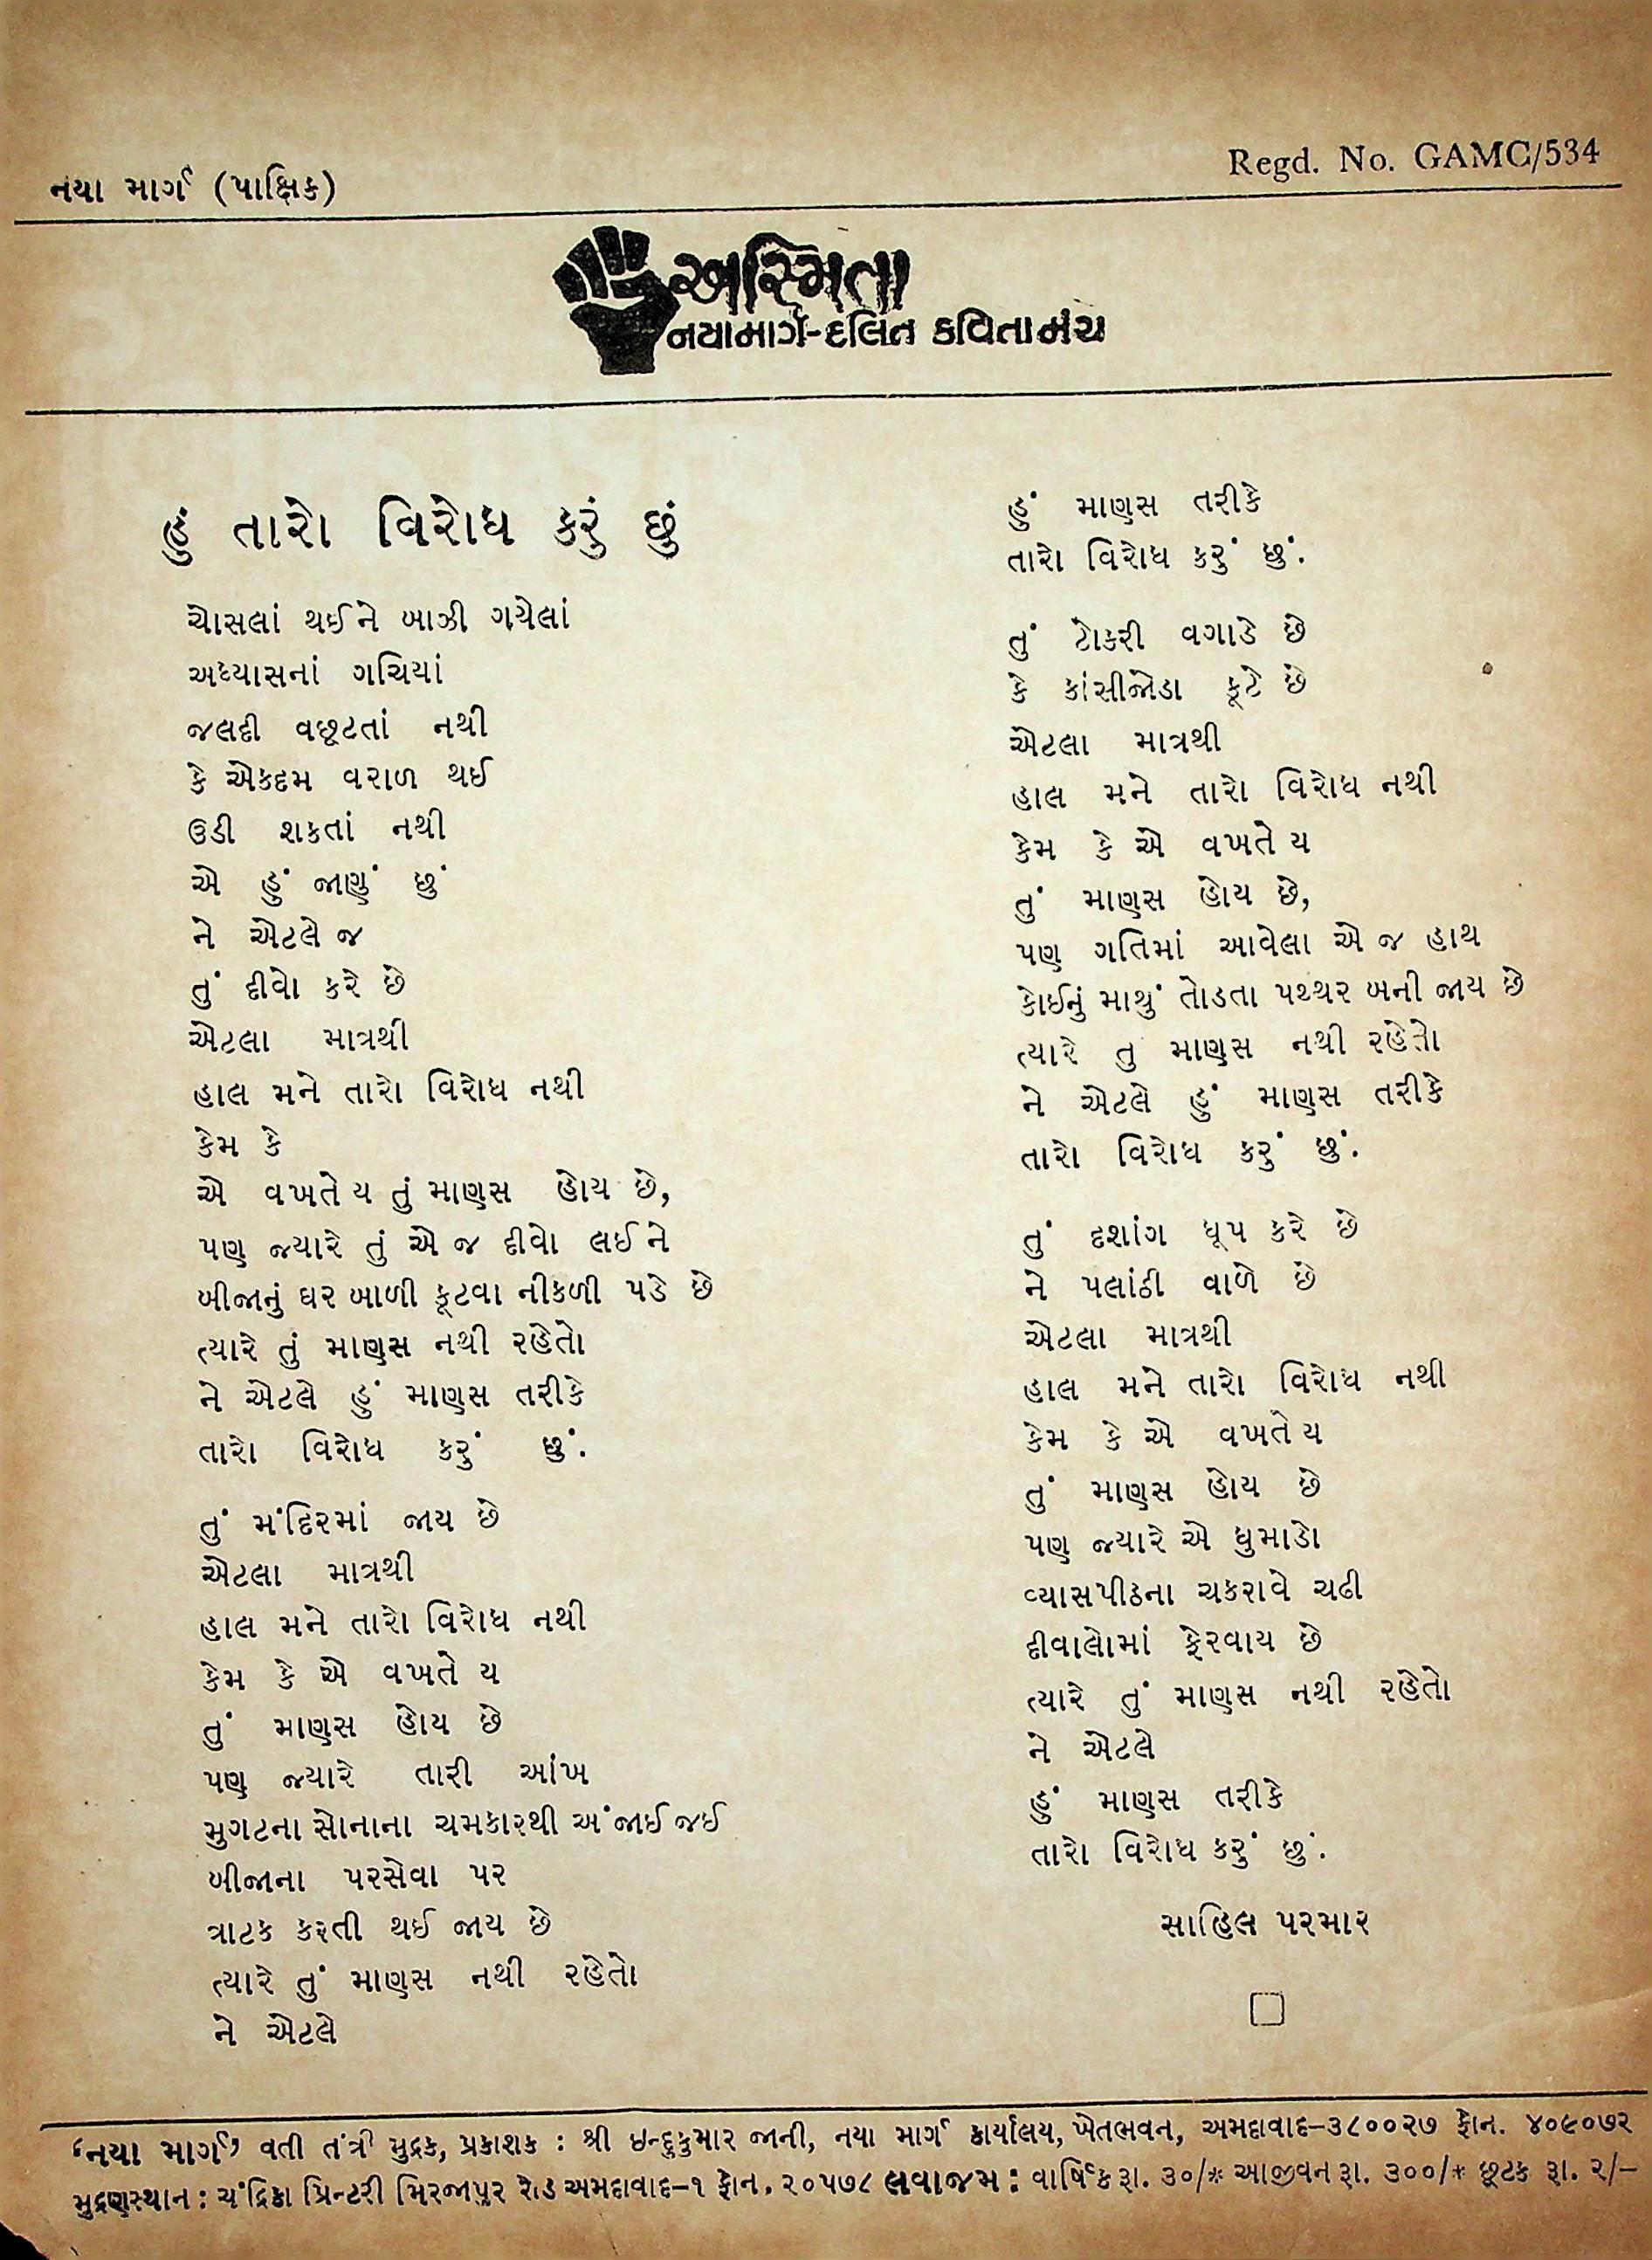 નયા માર્ગ (પાક્ષિક)
Regd. No. GAMC/534
અસ્મિતા
નયામાર્ગ-દલિત કવિતામંચ
હું તારો વિરોધ કરું છું
ચોસલાં થઈને બાઝી ગયેલાં
અધ્યાસનાં ગચિયાં
જલદી વછૂટતાં નથી
કે એકદમ વરાળ થઈ
ઉડી શકતાં નથી
એ હું જાણું છું
ને એટલે જ
તું દીવો કરે છે
એટલા માત્રથી
હાલ મને તારો વિરોધ નથી
કેમ કે
એ વખતે ય તું માણસ હોય છે,
પણ જ્યારે તું એ જ દીવો લઈને
બીજાનું ઘર બાળી ફૂટવા નીકળી પડે છે
ત્યારે તું માણસ નથી રહેતો
ને એટલે હું માણસ તરીકે
તારો વિરોધ કરું છું.
તું મંદિરમાં જાય છે
એટલા માત્રથી
હાલ મને તારો વિરોધ નથી
કેમ કે એ વખતે ય
તું માણસ હોય છે
પણ જ્યારે તારી આંખ
મુગટના સોનાના ચમકારથી અંજાઈ જઈ
બીજાના પરસેવા પર
ત્રાટક કરતી થઈ જાય છે
ત્યારે તું માણસ નથી રહેતો
ને એટલે
હું માણસ તરીકે
તારો વિરોધ કરું છું.
તું ટોકરી વગાડે છે
કે કાંસીજોડા કૂટે છે
એટલા માત્રથી
હાલ મને તારો વિરોધ નથી
કેમ કે એ વખતે ય
તું માણસ હોય છે,
પણ ગતિમાં આવેલા એ જ હાથ
કોઈનું માથું તોડતા પથ્થર બની જાય છે
ત્યારે તુ માણસ નથી રહેતો
ને એટલે હું માણસ તરીકે
તારો વિરોધ કરું છું.
તું દશાંગ ધૂપ કરે છે
ને પલાંઠી વાળે છે
એટલા માત્રથી
હાલ મને તારો વિરોધ નથી
કેમ કે એ વખતે ય
તું માણસ હોય છે
પણ જ્યારે એ ધુમાડો
વ્યાસપીઠના ચકરાવે ચઢી
દીવાલોમાં ફેરવાય છે
ત્યારે તું માણસ નથી રહેતો
ને એટલે
હું માણસ તરીકે
તારો વિરોધ કરું છું.
સાહિલ પરમાર
‘નયા માર્ગ’ વતી તંત્રી મુદ્રક, પ્રકાશક : શ્રી ઇન્દુકુમાર જાની, નયા માર્ગ કાર્યાલય, ખેતભવન, અમદાવાદ-૩૮૦૦૨૭ ફોન. ૪૦૯૦૭૨
મુદ્રણસ્થાન : ચંદ્રિકા પ્રિન્ટરી મિરજાપુર રોડ અમદાવાદ-૧ ફોન. ૨૦૫૭૮ લવાજમ : વાર્ષિક રૂા. ૩૦/* આજીવન રૂા. ૩૦૦/* છૂટક રૂા. ૨/-